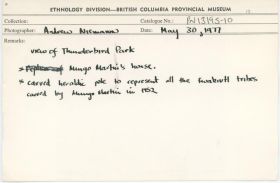 ETHNOLOGY DIVISION—BRITISH COLUMBIA PROVINCIAL MUSEUM
Collection: Catalogue No.: PN13195-10
Photographer: Andrew Niemann Date: May 30, 1977
Remarks:
view of Thunderbird Park
* Mungo Martin's house.
* carved heraldic pole to represent all the Kwakiutl tribes
carved by Mungo Martin in 1952